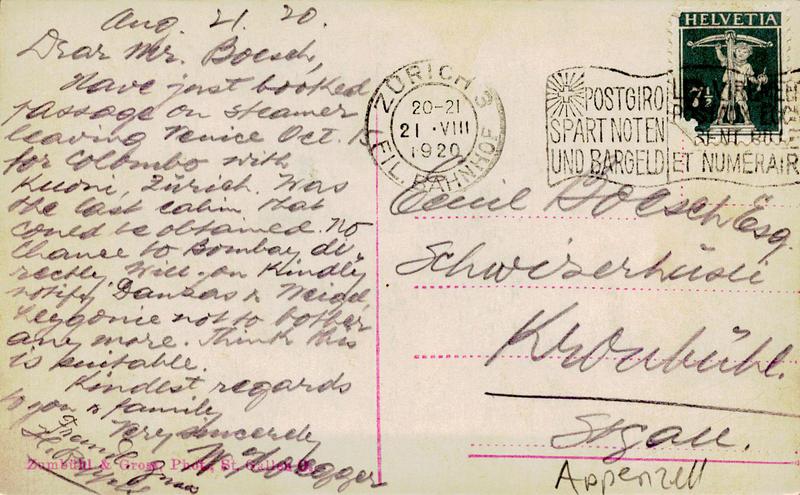 Aug. 21. 20.
Dear Mr. Boesch,
Have just booked
passage on steamer
leaving Venice Oct. 15
for Colombo with
Kuoni, Zürich. Was
the last cabin that
could be obtained. No
chance to Bombay di
rectly. Will you kindly
notify Danzas &
not to bother
any more. Think this
is suitable.
Kindest regards
to you & family
Very sincerely
Zumbühl & Gross, Phot., St. Gallen
HELVETIA
7½
ZÜRICH 3
20-21
21 · VIII
1920
FIL. BAHNHOF
POSTGIRO
SPART NOTEN
UND BARGELD
ET NUMERAIR
Emil Boesch Esq.
Schwizerhüsli
Kronbühl.
Stgall.
Appenzell